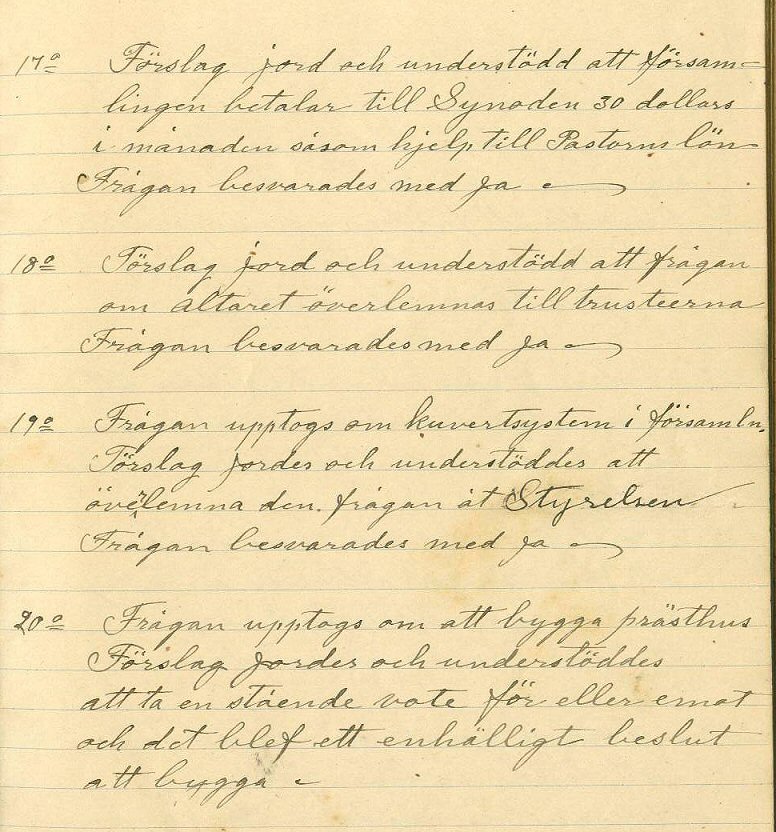 17o Förslag jord och understödd att försam=
lingen betalar till Synoden 30 dollars
i månaden såsom hjelp till Pastorns lön
Frågan besvarades med ja
18o Förslag jord och understödd att frågan
om altaret överlemnas till trusteerna
Frågan besvarades med ja
19o Frågan upptogs om kuvertsystem i församln.
Förslag jordes och understöddes att
överlemna den frågan åt Styrelsen
Frågan besvarades med ja
20o Frågan upptogs om att bygga prästhus
Förslag jordes och understöddes
att ta en stående vote för eller emot
och det blef ett enhälligt beslut
att bygga.